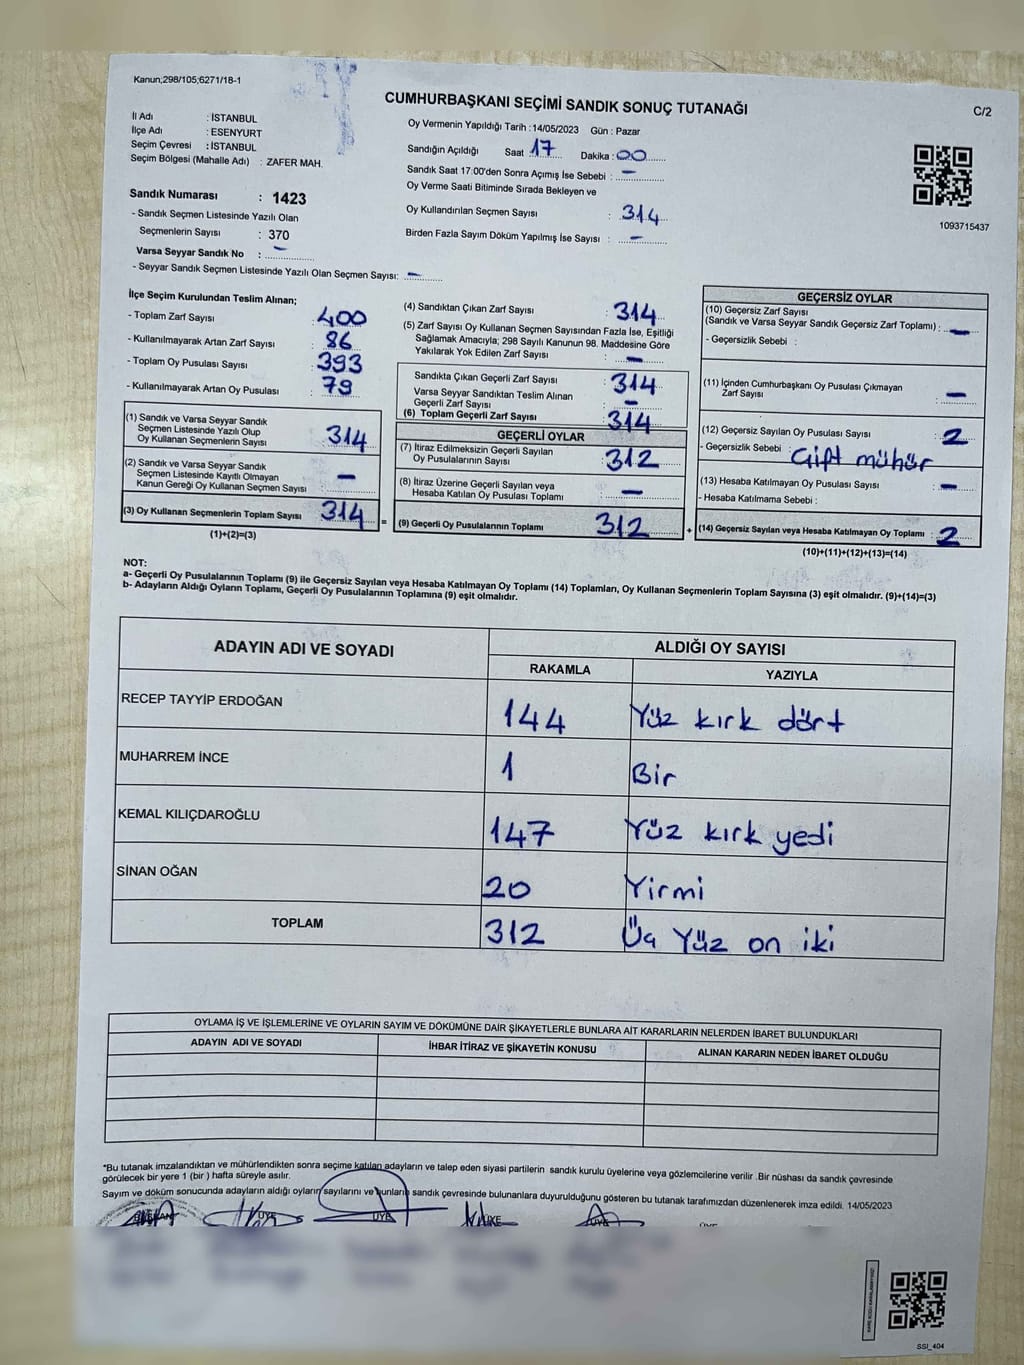 Kanun;298/105;6271/18-1
CUMHURBAŞKANI SEÇİMİ SANDIK SONUÇ TUTANAĞI
C/2
İl Adı : İSTANBUL
İlçe Adı : ESENYURT
Seçim Çevresi : İSTANBUL
Seçim Bölgesi (Mahalle Adı) : ZAFER MAH.
Sandık Numarası : 1423
- Sandık Seçmen Listesinde Yazılı Olan
Seçmenlerin Sayısı : 370
Varsa Seyyar Sandık No : -
- Seyyar Sandık Seçmen Listesinde Yazılı Olan Seçmen Sayısı: -
Oy Vermenin Yapıldığı Tarih : 14/05/2023 Gün : Pazar
Sandığın Açıldığı Saat 17 Dakika : 00
Sandık Saat 17:00'den Sonra Açımış İse Sebebi : -
Oy Verme Saati Bitiminde Sırada Bekleyen ve
Oy Kullandırılan Seçmen Sayısı : 314
Birden Fazla Sayım Döküm Yapılmış İse Sayısı : -
1093715437
İlçe Seçim Kurulundan Teslim Alınan;
- Toplam Zarf Sayısı : 400
- Kullanılmayarak Artan Zarf Sayısı : 86
- Toplam Oy Pusulası Sayısı : 393
- Kullanılmayarak Artan Oy Pusulası : 79
(1) Sandık ve Varsa Seyyar Sandık
Seçmen Listesinde Yazılı Olup
Oy Kullanan Seçmenlerin Sayısı : 314
(2) Sandık ve Varsa Seyyar Sandık
Seçmen Listesinde Kayıtlı Olmayan
Kanun Gereği Oy Kullanan Seçmen Sayısı : -
(3) Oy Kullanan Seçmenlerin Toplam Sayısı : 314 =
(1)+(2)=(3)
(4) Sandıktan Çıkan Zarf Sayısı : 314
(5) Zarf Sayısı Oy Kullanan Seçmen Sayısından Fazla İse, Eşitliği
Sağlamak Amacıyla; 298 Sayılı Kanunun 98. Maddesine Göre
Yakılarak Yok Edilen Zarf Sayısı : -
Sandıkta Çıkan Geçerli Zarf Sayısı : 314
Varsa Seyyar Sandıktan Teslim Alınan
Geçerli Zarf Sayısı : -
(6) Toplam Geçerli Zarf Sayısı : 314
GEÇERLİ OYLAR
(7) İtiraz Edilmeksizin Geçerli Sayılan
Oy Pusulalarının Sayısı : 312
(8) İtiraz Üzerine Geçerli Sayılan veya
Hesaba Katılan Oy Pusulası Toplamı : -
(9) Geçerli Oy Pusulalarının Toplamı : 312 +
GEÇERSİZ OYLAR
(10) Geçersiz Zarf Sayısı
(Sandık ve Varsa Seyyar Sandık Geçersiz Zarf Toplamı) : -
- Geçersizlik Sebebi :
(11) İçinden Cumhurbaşkanı Oy Pusulası Çıkmayan
Zarf Sayısı : -
(12) Geçersiz Sayılan Oy Pusulası Sayısı : 2
- Geçersizlik Sebebi : Çift mühür
(13) Hesaba Katılmayan Oy Pusulası Sayısı : -
- Hesaba Katılmama Sebebi :
(14) Geçersiz Sayılan veya Hesaba Katılmayan Oy Toplamı : 2
(10)+(11)+(12)+(13)=(14)
NOT:
a- Geçerli Oy Pusulalarının Toplamı (9) ile Geçersiz Sayılan veya Hesaba Katılmayan Oy Toplamı (14) Toplamları, Oy Kullanan Seçmenlerin Toplam Sayısına (3) eşit olmalıdır. (9)+(14)=(3)
b- Adayların Aldığı Oyların Toplamı, Geçerli Oy Pusulalarının Toplamına (9) eşit olmalıdır.
ADAYIN ADI VE SOYADI ALDIĞI OY SAYISI
RAKAMLA YAZIYLA
RECEP TAYYİP ERDOĞAN 144 Yüz kırk dört
MUHARREM İNCE 1 Bir
KEMAL KILIÇDAROĞLU 147 Yüz kırk yedi
SİNAN OĞAN 20 Yirmi
TOPLAM 312 Üç Yüz on iki
OYLAMA İŞ VE İŞLEMLERİNE VE OYLARIN SAYIM VE DÖKÜMÜNE DAİR ŞİKAYETLERLE BUNLARA AİT KARARLARIN NELERDEN İBARET BULUNDUKLARI
ADAYIN ADI VE SOYADI İHBAR İTİRAZ VE ŞİKAYETİN KONUSU ALINAN KARARIN NEDEN İBARET OLDUĞU
*Bu tutanak imzalandıktan ve mühürlendikten sonra seçime katılan adayların ve talep eden siyasi partilerin sandık kurulu üyelerine veya gözlemcilerine verilir .Bir nüshası da sandık çevresinde
görülecek bir yere 1 (bir ) hafta süreyle asılır.
Sayım ve döküm sonucunda adayların aldığı oyların sayılarını ve bunların sandık çevresinde bulunanlara duyurulduğunu gösteren bu tutanak tarafımızdan düzenlenerek imza edildi. 14/05/2023
BAŞKAN ÜYE ÜYE ÜYE ÜYE
SSI_404